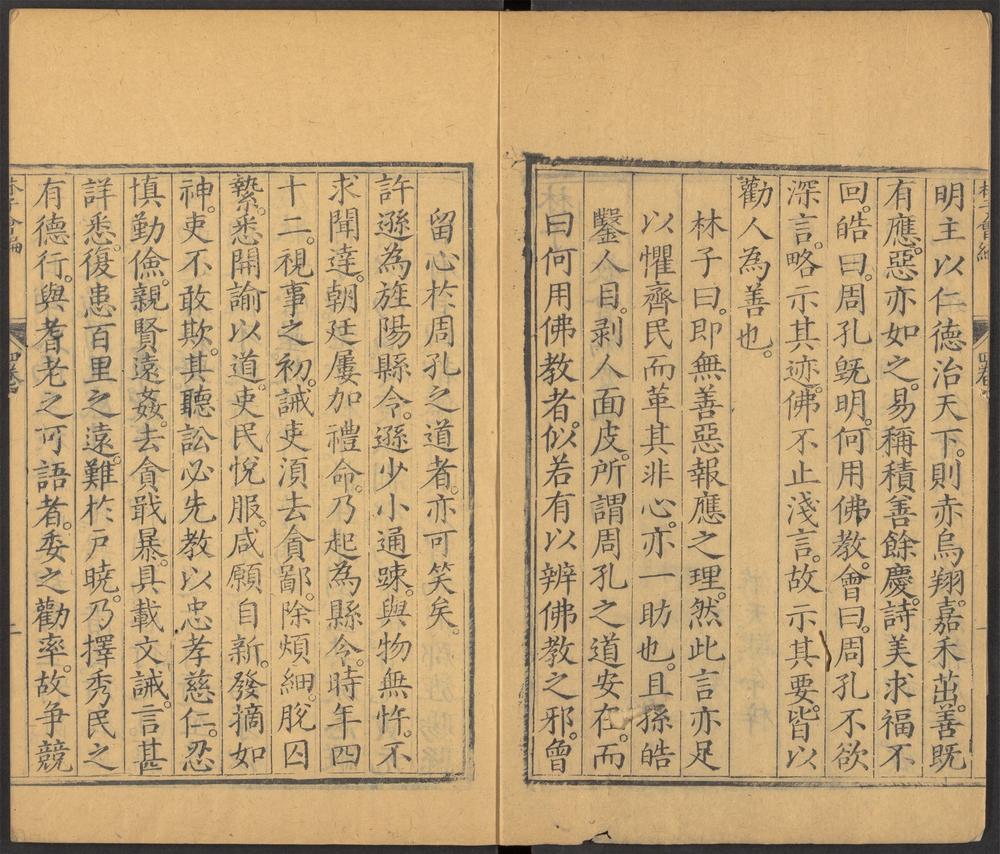 明主以仁德治天下。則赤烏翔。嘉禾茁。善既
有應。惡亦如之。易稱積善餘慶。詩美求福不
回。皓曰。周孔既明。何用佛教。會曰。周孔不欲
深言。略示其迹。佛不止淺言。故示其要。皆以
勸人為善也。
林子曰。即無善惡報應之理。然此言亦足
以懼齊民而革其非心。亦一助也。且孫皓
鑿人目。剥人面皮。所謂周孔之道安在。而
曰何用佛教者。似若有以辨佛教之邪。曾
留心於周孔之道者。亦可笑矣。
許遜為旌陽縣令。遜少小通踈。與物無忤。不
求聞達。朝廷屢加禮命。乃起為縣令。時年四
十二。視事之初。誡吏湏去貪鄙。除煩細。脫囚
縶。悉開諭以道。吏民悅服。咸願自新。發摘如
神。吏不敢欺。其聽訟必先教以忠孝慈仁。忍
慎勤儉。親賢遠姦。去貪戢暴。具載文誡。言甚
詳悉。復患百里之遠。難於户曉。乃擇秀民之
有德行。與耆老之可語者。委之勸率。故争競